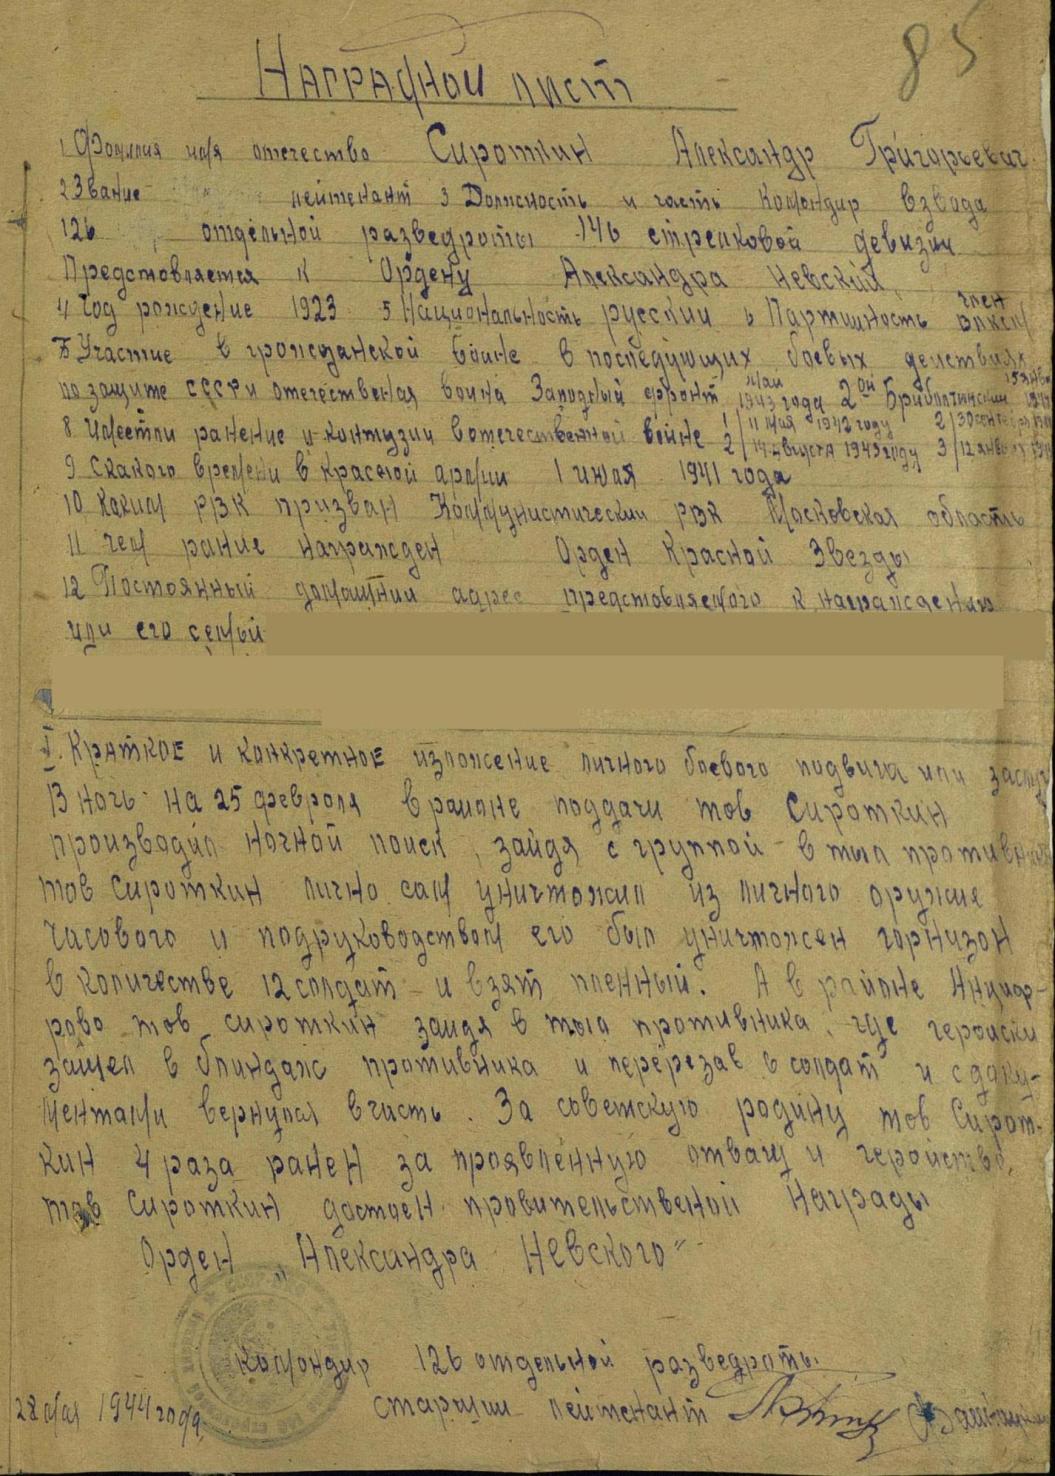 85
Наградной лист
1 Фамилия имя отечество Сироткин Александр Григорьевич
2 Звание лейтенант 3 Должность и часть Командир взвода
126 отдельной разведроты 146 стрелковой девизии
Предстовляется к Ордену Александра Невский
4 Год рождение 1923 5 Национальность русский 6 Партийность член ВЛКСМ
7 Участие в грожданской войне в последующих боевых действиях
по защите СССР и отечественая война Западный фронт май 1943 года 2ой Прибалтийский
8 Имеетли ранение и контузии в отечественной войне 1/ 11 мая 1942 году 2/ 30
2/ 14 августа 1943 году 3/ 12
9 Скакого времени в красной армии 1 июля 1941 года
10 Каким РВК призван Коммунистический РВК Московская область
11 чем рание награжден Орден Красной Звезды
12 Постоянный домашний адрес предстовляемого к награждению
или его семьи
I. Краткое и конкретное изложение личного боевого подвига или заслуг
В ночь на 25 февроля в районе поддачи тов Сироткин
производил ночной поиск, зайдя с группой в тыл противника
тов Сироткин лично сам уничтожил из личного оружие
часового и подруководством его был уничтожен горнизон
в количестве 12 солдат и взят пленный. А в районе
рово тов сироткин зайдя в тыл противника, где геройски
зашел в блиндаж противника и перерезав 6 солдат и с доку-
ментами вернулся в часть. За советскую родину тов Сирот-
кин 4 раза ранен за проявленную отвагу и геройство,
тов Сироткин достоен провительственой Награды
Орден „Александра Невского"
Командир 126 отдельной разведроты
28 мая 1944 года старший лейтенант